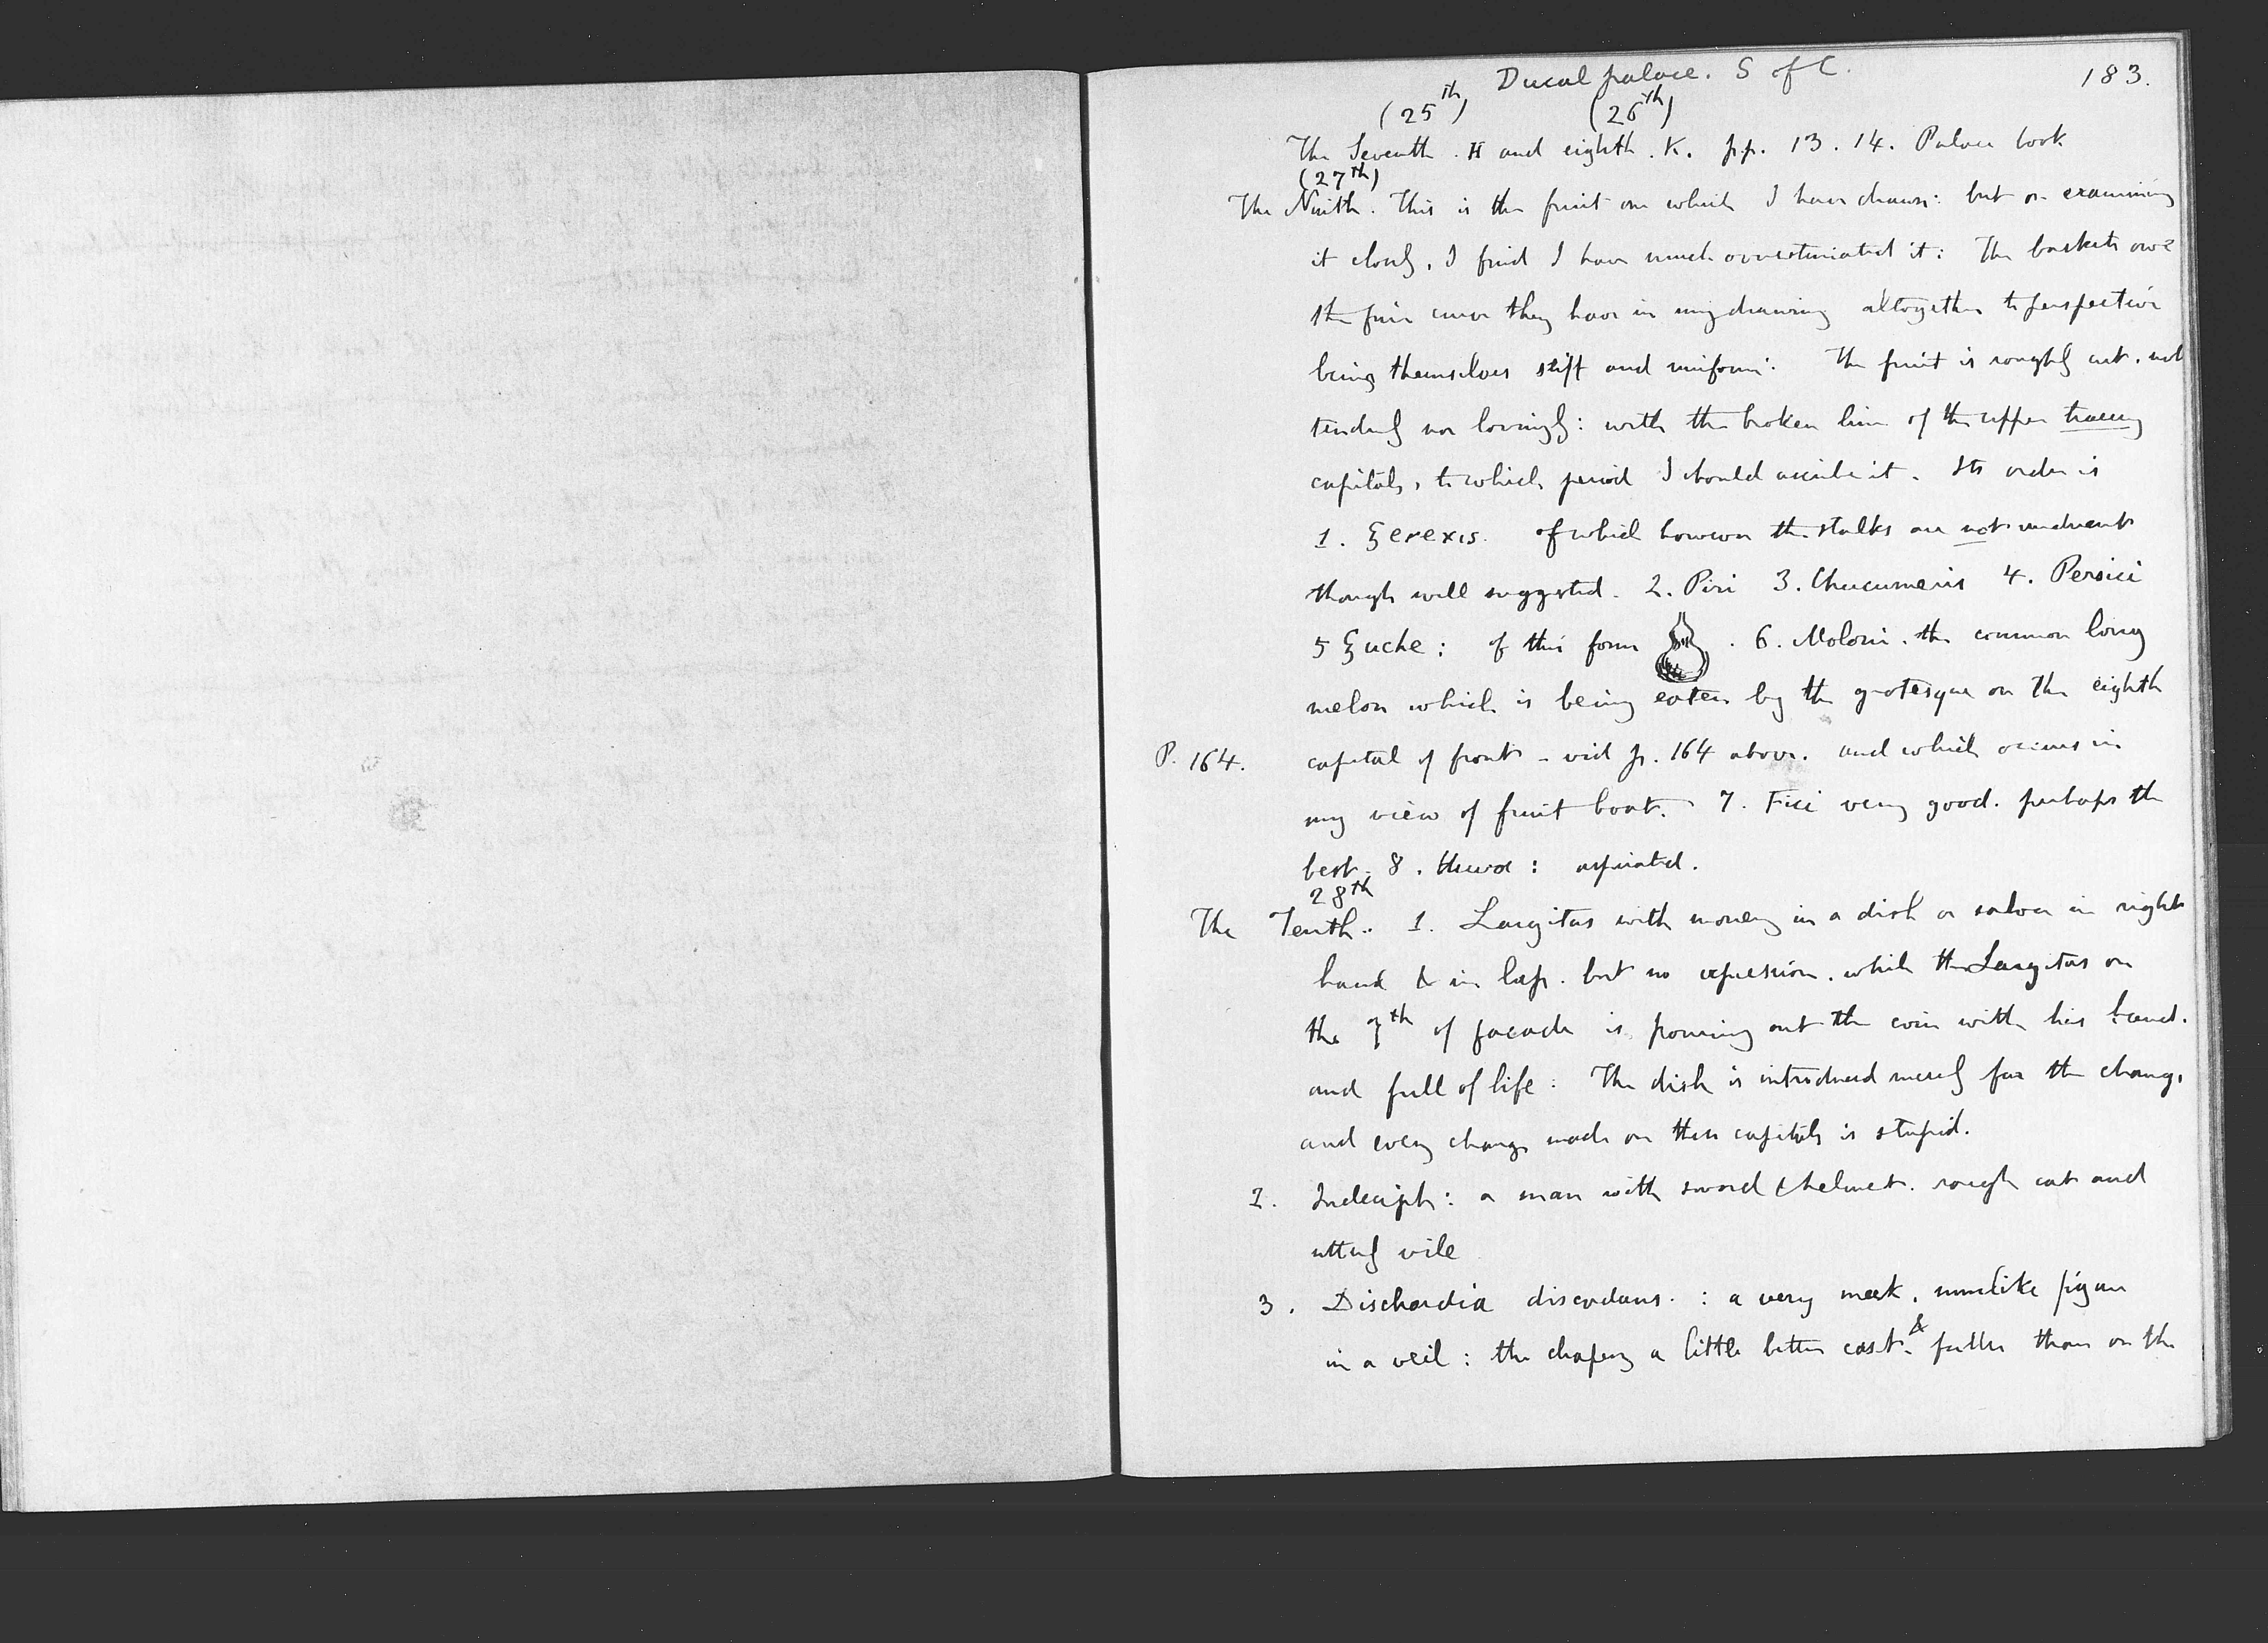 Ducal palace. S of C. 183.
(25th) (26th)
The Seventh. H and eighth. K. pp. 13. 14. Palace book
(27th)
The Ninth. This is the fruit one which I have drawn: but on examining
it closely, I find I have much overestimated it: The baskets owe
the fine curve they have in my drawing altogether to perspective
being themselves stiff and uniform: The fruit is roughly cut, not
tenderly nor lovingly: with the broken line of the upper tracery
capitals, to which period I should ascribe it. Its order is
1. Ȝerexis. of which however the stalks are not undercut
though well suggested. 2. Piri 3. Chucumeris 4. Persici
5 Ȝuche: of this form . 6. Moloni. the common long
melon which is being eaten by the grotesque on the eighth
P. 164. capital of front - vid p. 164 above. and which occurs in
my view of fruit boat. 7. Fici very good. perhaps the
best. 8. Huva: aspirated.
28th
The Tenth. 1. Largitas with money in a dish or salver in right
hand & in lap. but no expression. while the Largitas on
the 7th of facade is pouring out the coin with his hand.
and full of life: The dish is introduced merely for the change,
and every change made on these capitals is stupid.
2. Indeciph: a man with sword & helmet. rough cut and
utterly vile
3. Dischordia discordans. : a very meek, nunlike figure
in a veil: the drapery a little better cast. & fuller than on the